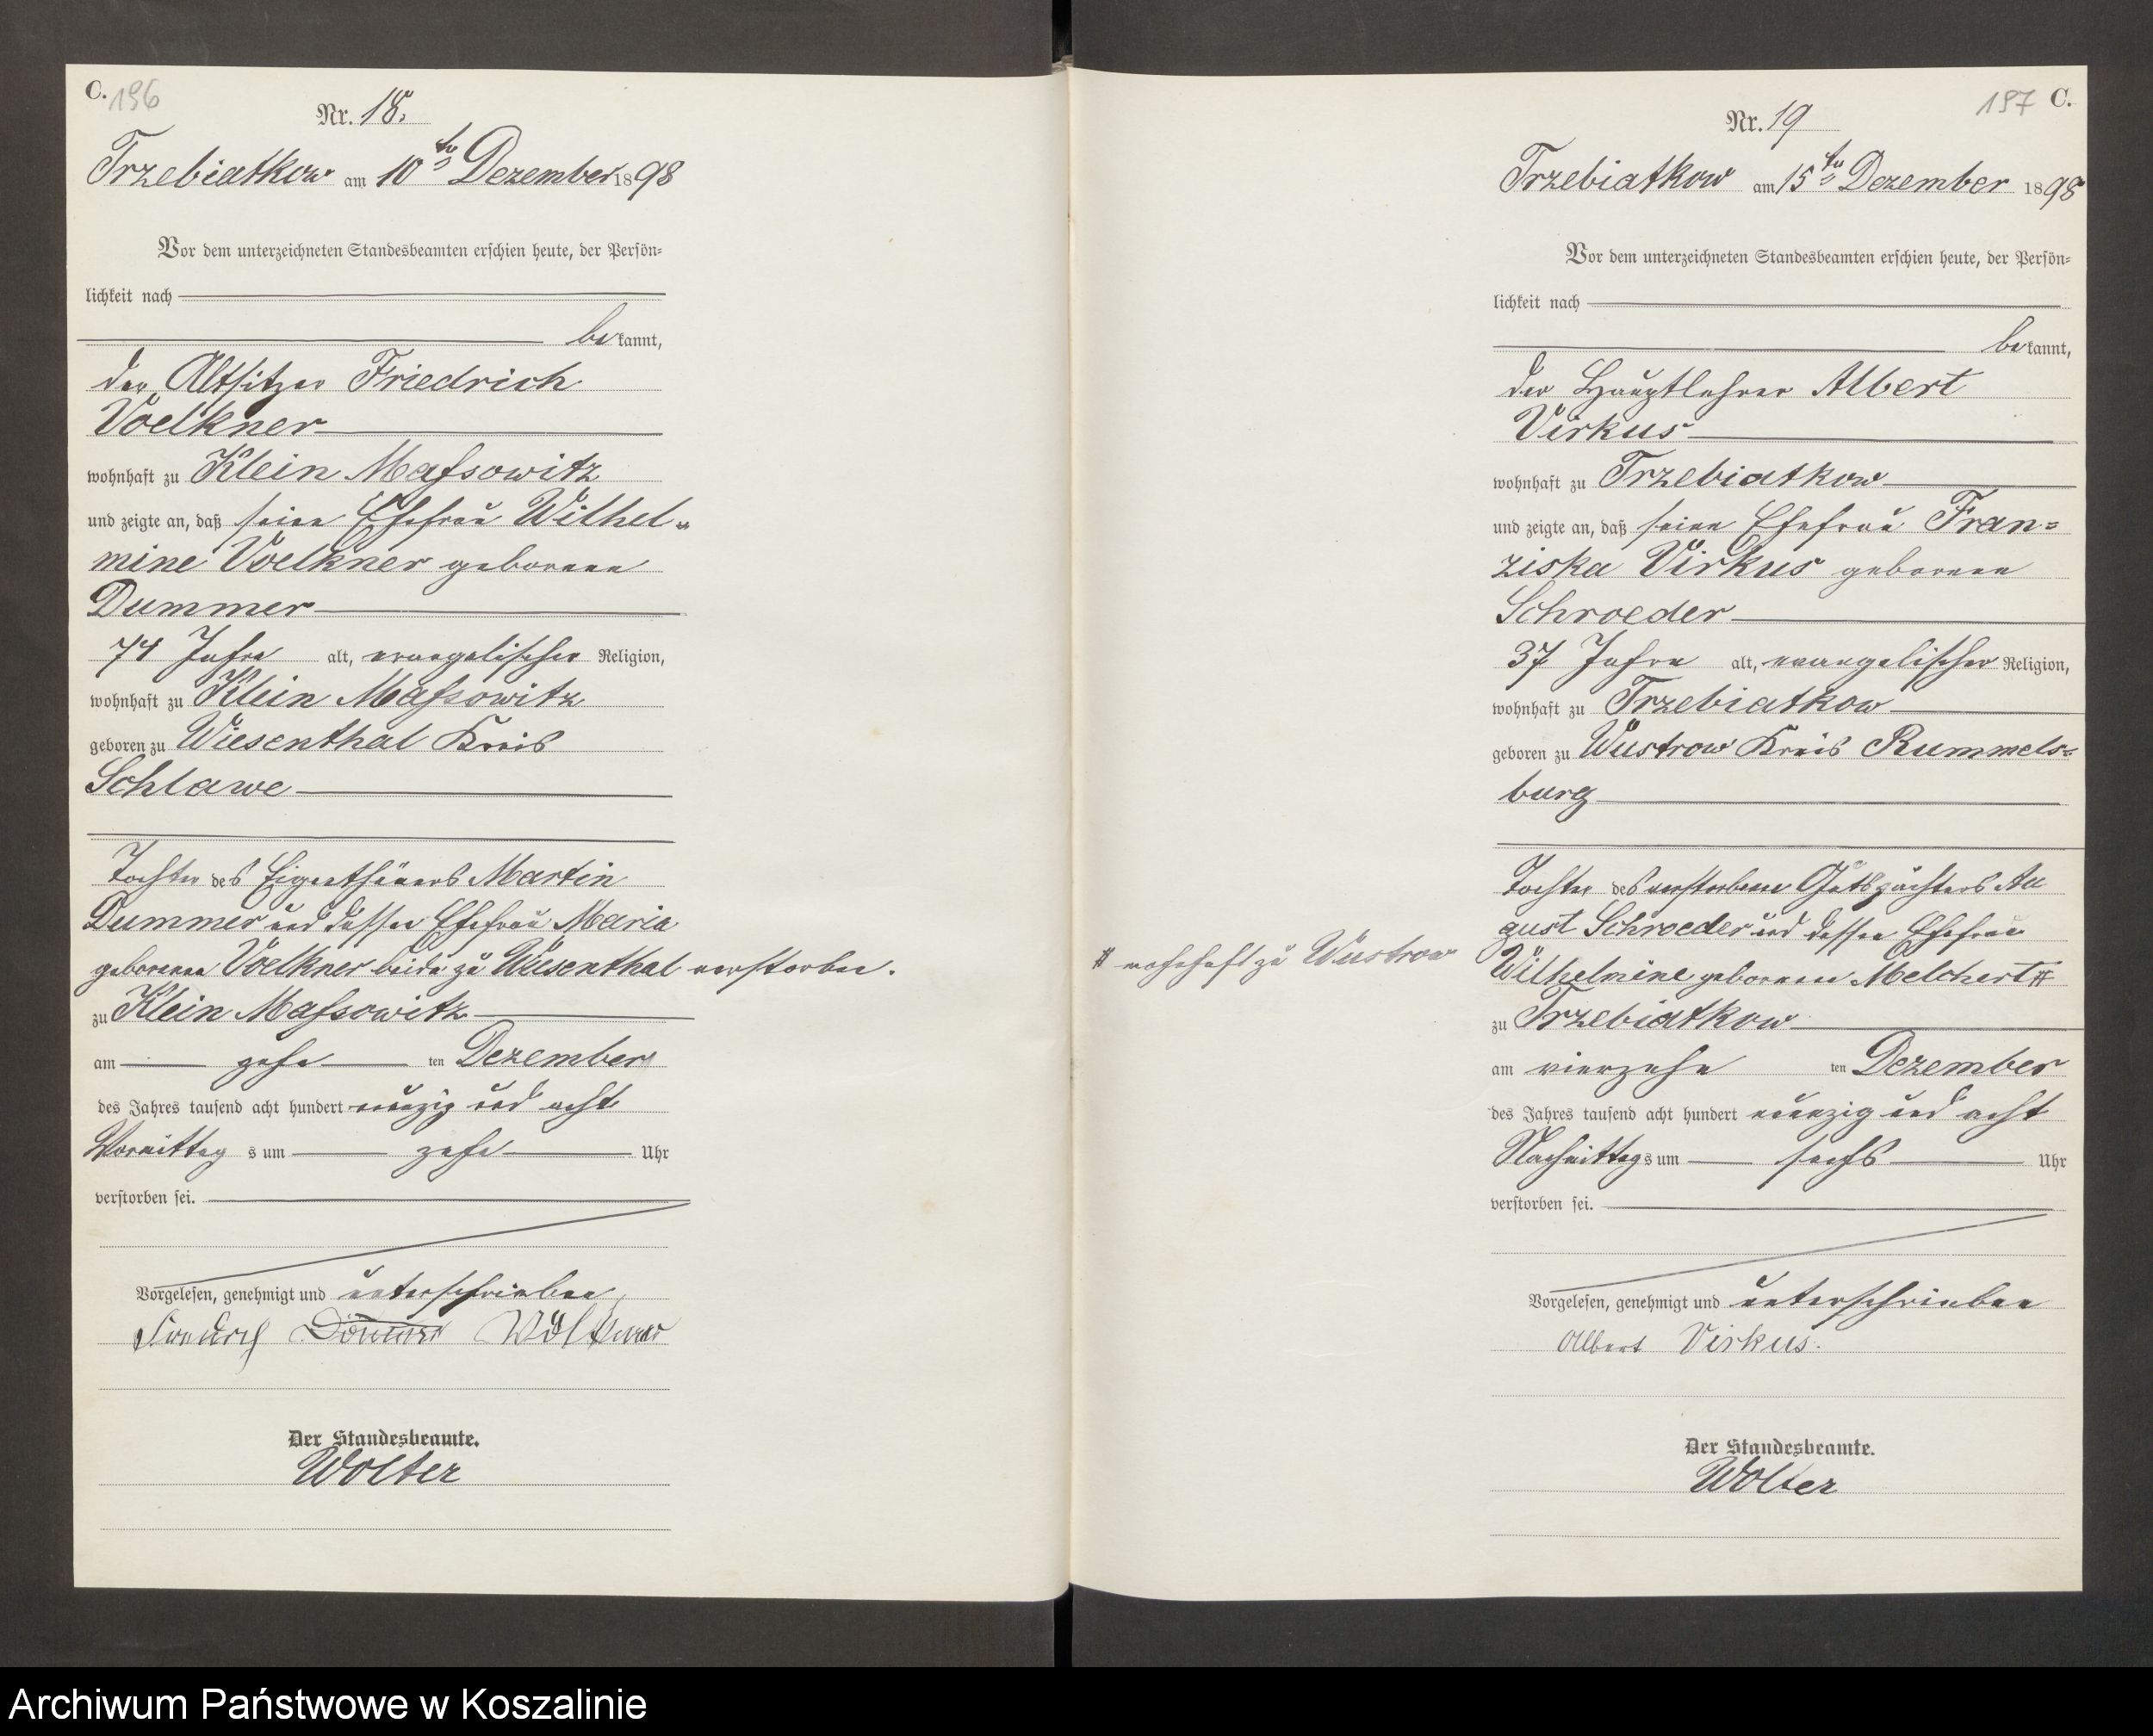 C.
196
Nr. 18.
Trzebiatkow am 10ten Dezember 1898
Vor dem unterzeichneten Standesbeamten erschien heute, der Persön-
lichkeit nach
bekannt,
der Altsitzer Friedrich
Voelkner
wohnhaft zu Klein Massowitz
und zeigte an, daß seine Ehefrau Wilhel-
mine Voelkner geborene
Dummer
74 Jahre alt, evangelischer Religion,
wohnhaft zu Klein Massowitz
geboren zu Wiesenthal Kreis
Schlawe
Tochter des Eigenthümers Martin
Dummer und dessen Ehefrau Maria
geborenen Voelkner beide zu Wiesenthal verstorben.
zu Klein Massowitz
am zehn ten Dezember
des Jahres tausend acht hundert neunzig und acht
Vormittag s um zehn Uhr
verstorben sei.
Vorgelesen, genehmigt und unterschrieben
Friedrich Völkner
Der Standesbeamte.
Wolter
197 C.
Nr. 19
Trzebiatkow am 15ten Dezember 1898
Vor dem unterzeichneten Standesbeamten erschien heute, der Persön-
lichkeit nach
bekannt,
der Hauptlehrer Albert
Virkus
wohnhaft zu Trzebiatkow
und zeigte an, daß seine Ehefrau Fran-
ziska Virkus geborene
Schroeder
37 Jahre alt, evangelischer Religion,
wohnhaft zu Trzebiatkow
geboren zu Wustrow Kreis Rummels-
burg
Tochter des verstorbenen Gutspächters Au
gust Schroeder und dessen Ehefrau
# wohnhaft zu Wustrow
Wilhelmine geborenen Melchert #
zu Trzebiatkow
am vierzehn ten Dezember
des Jahres tausend acht hundert neunzig und acht
Nachmittags um sechs Uhr
verstorben sei.
Vorgelesen, genehmigt und unterschrieben
Albert Virkus.
Der Standesbeamte.
Wolter
Archiwum Państwowe w Koszalinie